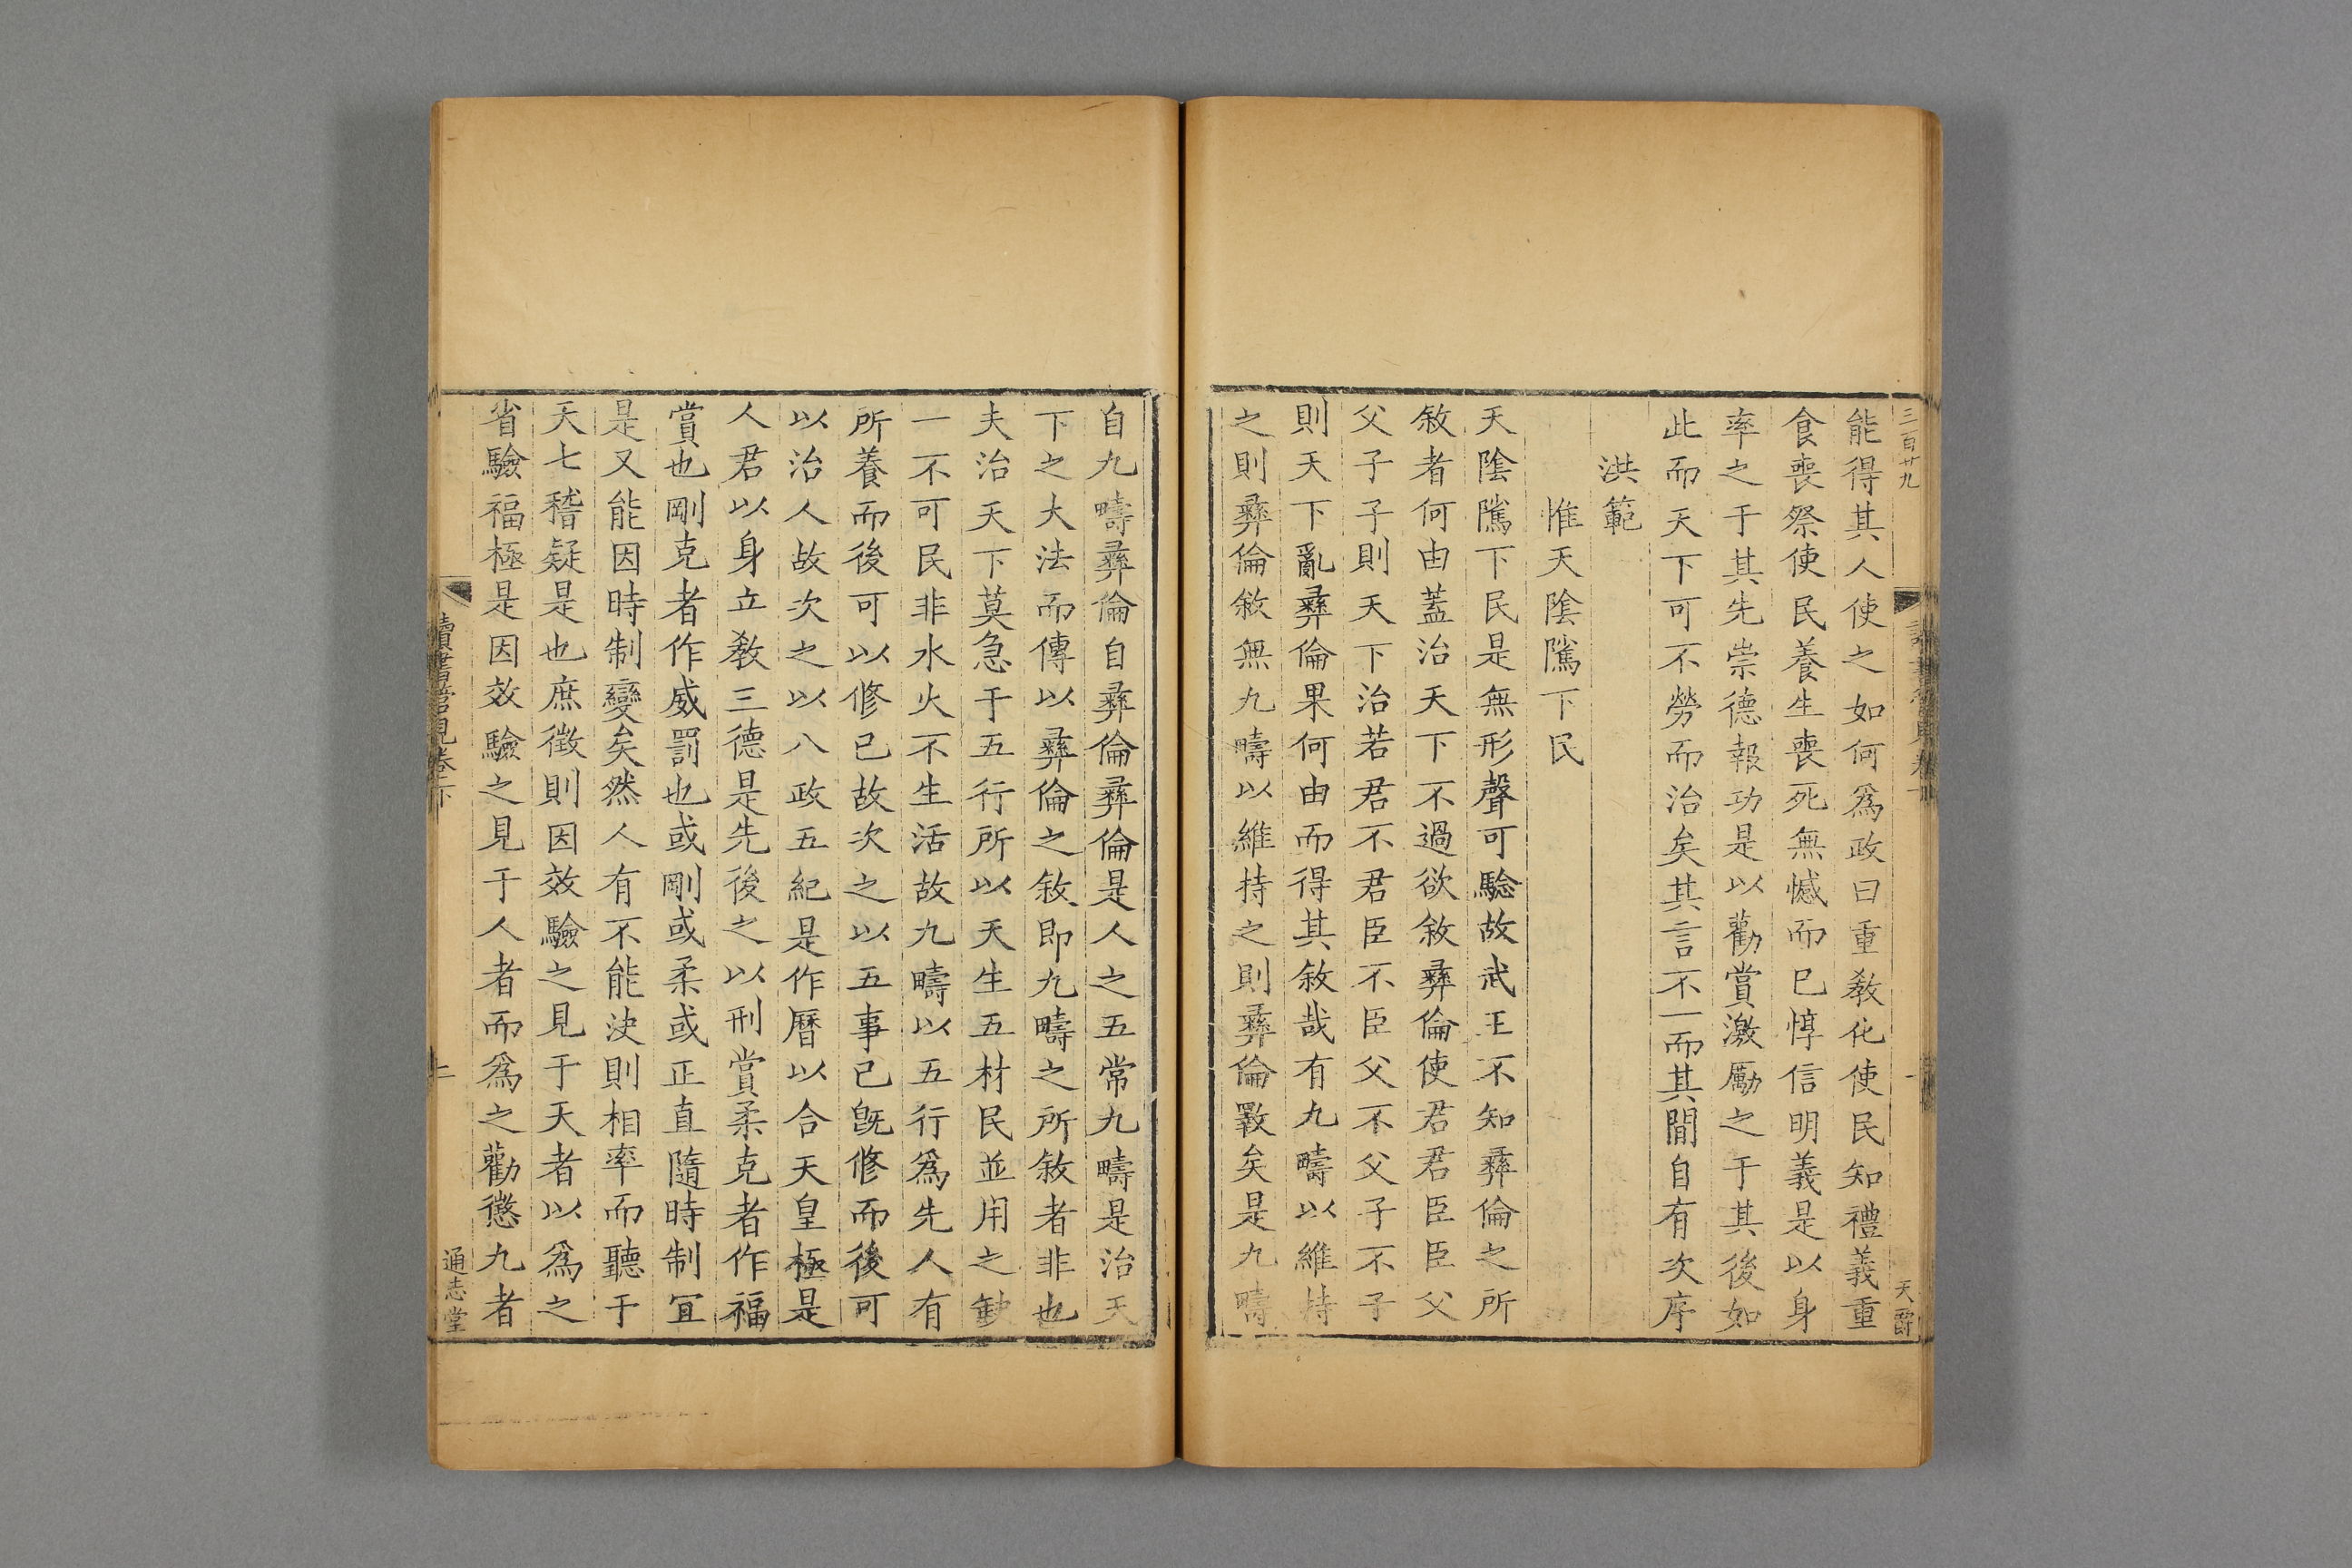 三百廿九
能得其人使之如何爲政曰重敎化使民知禮義重
食喪祭使民養生喪死無憾而已惇信明義是以身
率之于其先崇德報功是以勸賞激厲之于其後如
此而天下可不勞而治矣其言不一而其間自有次序
洪範
惟天陰隲下民
天陰隲下民是無形聲可驗故武王不知彞倫之所
敘者何由蓋治天下不過欲敘彞倫使君君臣臣父
父子子則天下治若君不君臣不臣父不父子不子
則天下亂彞倫果何由而得其敘哉有九疇以維持
之則彞倫敘無九疇以維持之則彞倫斁矣是九疇
天爵
自九疇彞倫自彞倫彞倫是人之五常九疇是治天
下之大法而傳以彞倫之敘即九疇之所敘者非也
夫治天下莫急于五行所以天生五材民並用之缺
一不可民非水火不生活故九疇以五行爲先人有
所養而後可以修已故次之以五事已旣修而後可
以治人故次之以八政五紀是作曆以合天皇極是
人君以身立敎三德是先後之以刑賞柔克者作福
賞也剛克者作威罰也或剛或柔或正直隨時制冝
是又能因時制變矣然人有不能決則相率而聽于
天七稽疑是也庶徵則因效驗之見于天者以爲之
省驗福極是因效驗之見于人者而爲之勸懲九者
讀書管見卷下
二
通志堂